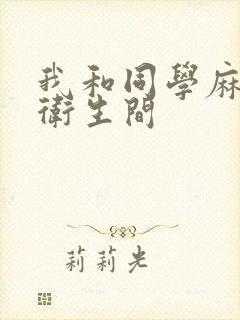 我和同學麻
衛生間
莉莉光